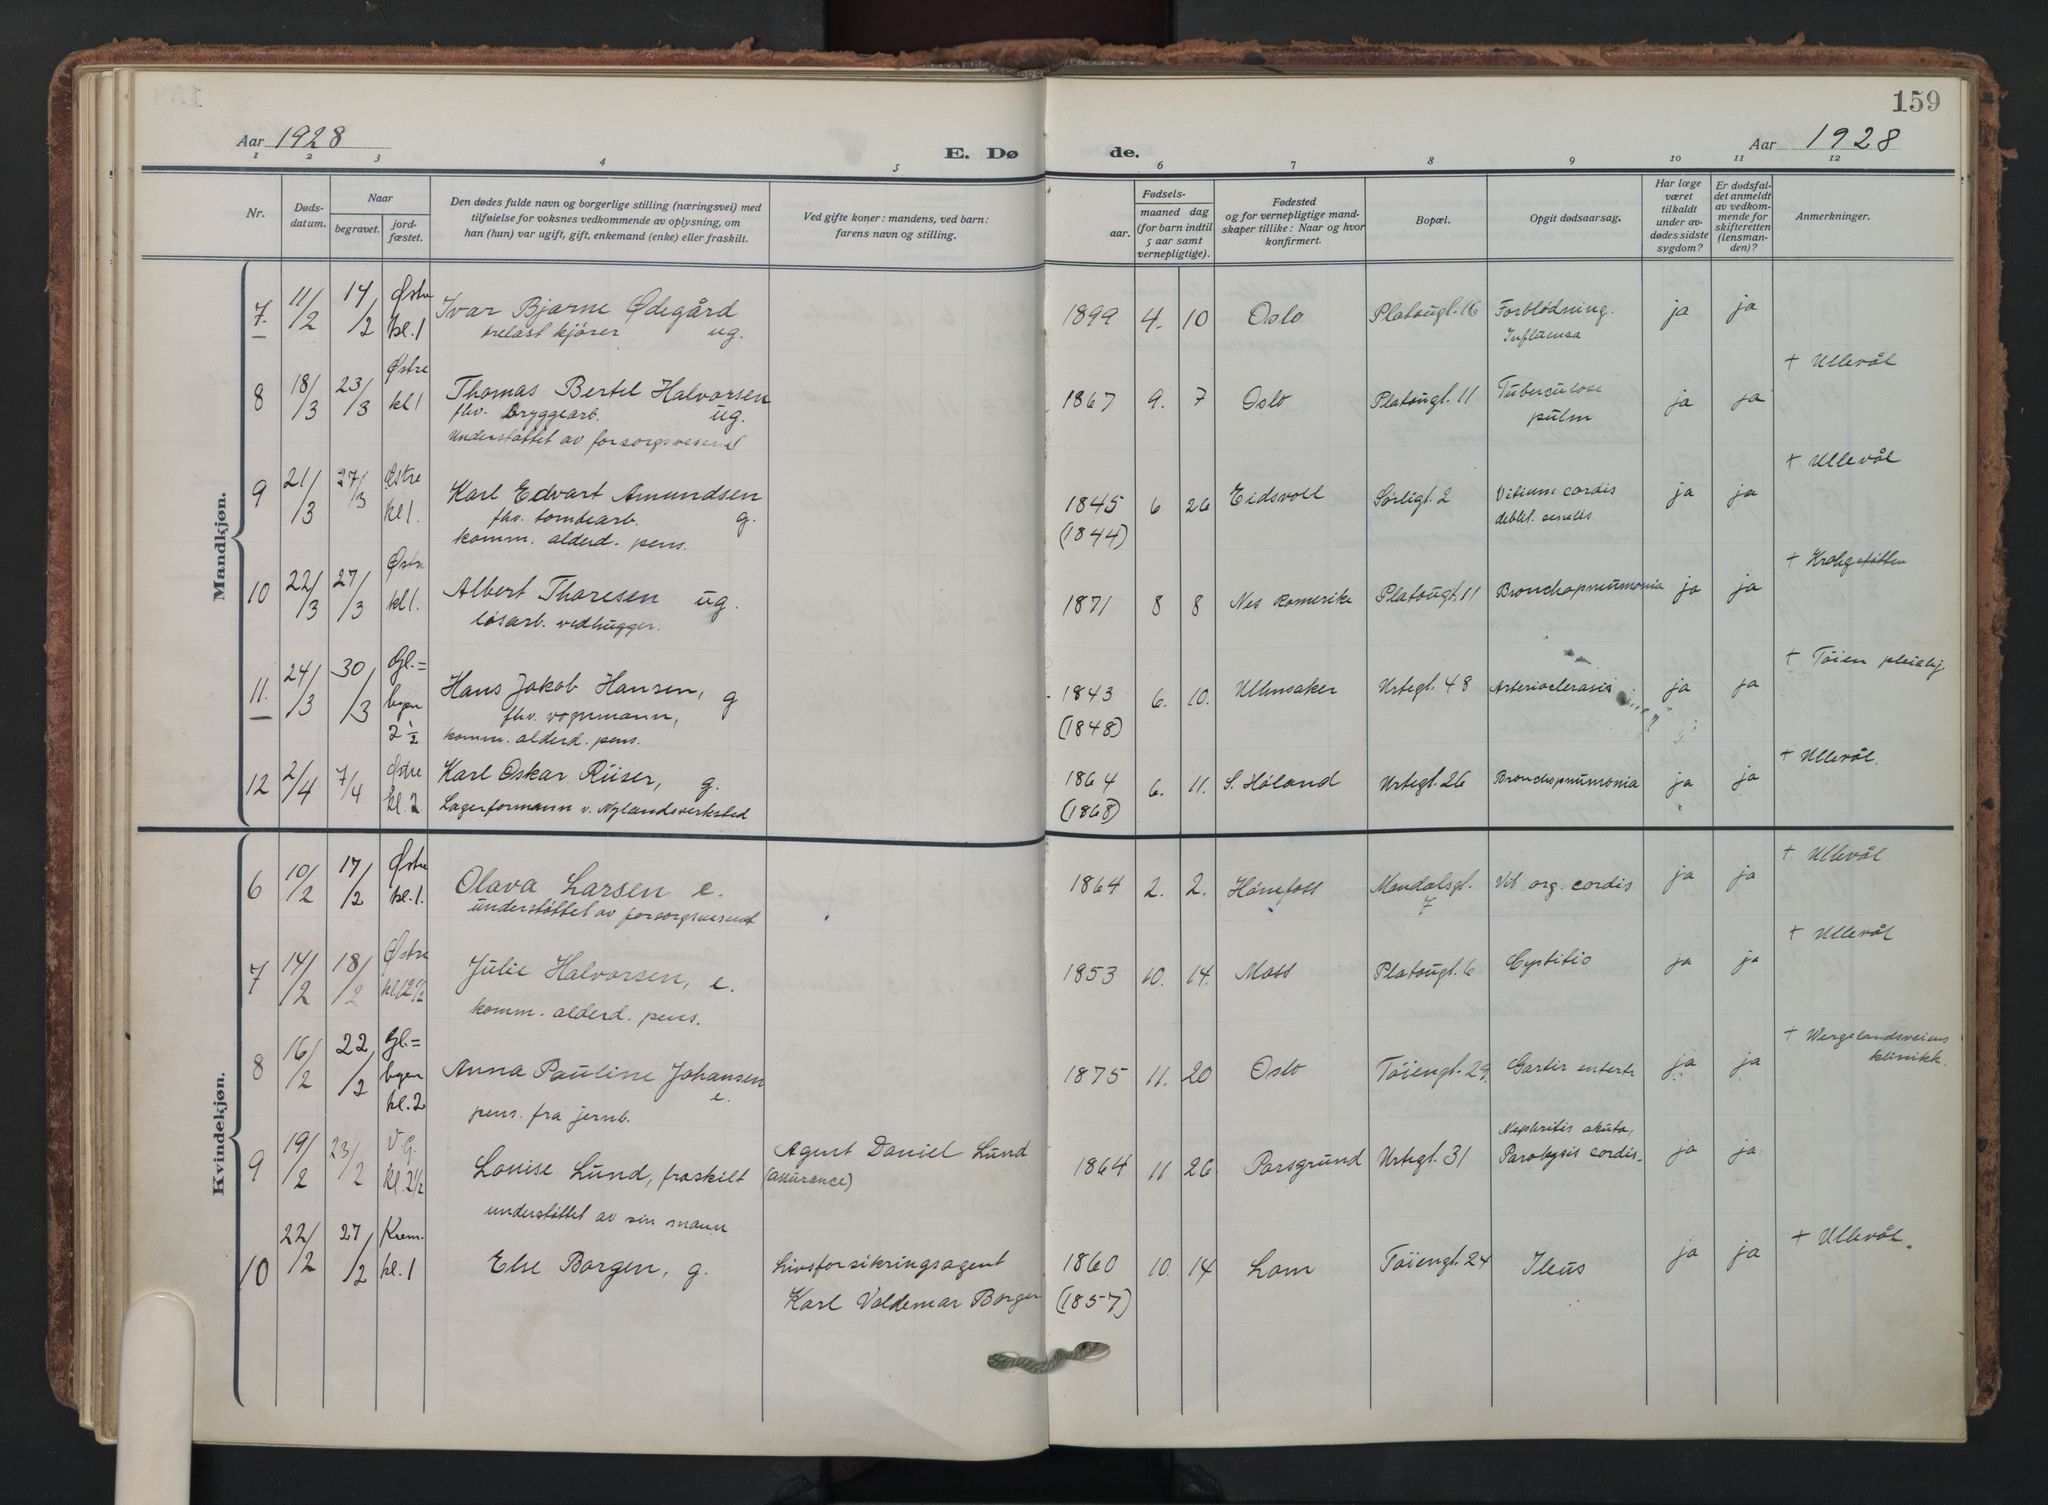 159
Aar 1928
E. Dø de.
Aar 1928
1 2 3 4 5 6 7 8 9 10 11 12
Nr.
Døds-
datum.
Naar
begravet.
jord-
fæstet.
Den dødes fulde navn og borgerlige stilling (næringsvei) med
tilføielse for voksnes vedkommende av oplysning, om
han (hun) var ugift, gift, enkemand (enke) eller fraskilt.
Ved gifte koner: mandens, ved barn:
farens navn og stilling.
Fødsels-
aar.
maaned dag
(for barn indtil
5 aar samt
vernepligtige).
Fødested
og for vernepligtige mand-
skaper tillike: Naar og hvor
konfirmert.
Bopæl.
Opgit dødsaarsag.
Har læge
været
tilkaldt
under av-
dødes sidste
sygdom?
Er dødsfal-
det anmeldt
av vedkom-
mende for
skifteretten
(lensman-
den)?
Anmerkninger.
Mandkjøn.
7. 11/2 14/2 Østre kl.1 Ivar Bjarne Ødegård 1899 4. 10 Oslo Platougt. 16 Forblødning. ja ja
trelast kjører ug. Influensa
8 18/3 23/3 Østre kl 1 Thomas Bertel Halvorsen 1867 9. 7 Oslo Platougt. 11 Tuberculose pulm ja ja + Ullevål
fhv. bryggearb. ug.
Understøttet av forsorgsvesenet
9 21/3 27/3 Østre kl 1. Karl Edvart Amundsen 1845 6 26 Eidsvoll Sørligt. 2 Vitium cordis ja ja + Ullevål
fhv. tomtearb. g. (1844) debil. senilis
komm. alderd. pens.
10 22/3 27/3 Østre kl 1. Albert Thoresen ug. 1871 8 8 Nes Romerike Platougt. 11 Bronchopneumonia ja ja + Krohgstøtten
løsarb. vedhugger.
11. 24/3 30/3 Gl.= byen 2 1/2 Hans Jakob Hansen, g 1843 6. 10. Ullensaker Urtegt. 48 Arteriosclerosis ja ja + Tøien pleiehj
fhv. vognmann, (1848)
komm. alderd. pens.
12 2/4 7/4 Østre kl. 2. Karl Oskar Riiser, g. 1864 6. 11. S. Høland Urtegt. 26 Bronchopnumonia ja ja + Ullevål.
Lagerformann v. Nylandsverksted (1868)
Kvindekjøn.
6 10/2 17/2 Østre kl. 1. Olava Larsen e. 1864 2. 2. Hønefoss Mandalsgt. 7 Vit. org. cordis ja ja + Ullevål
understøttet av forsorgsvesenet
7 14/2 18/2 Østre Julie Halvorsen, e. 1853 10. 14. Moss Platougt. 6 Cystitis ja ja + Ullevål
komm. alderd. pens.
8 16/2 22/2 Gl.= byen kl. 2 Anna Pauline Johansen 1875 11. 20 Oslo Tøiengt. 29. Gastir enterte ja ja + Wergelandsveiens klinikk.
e.
pens. fra jernb.
9 19/2 23/2 V. G. kl. 2 1/2 Louise Lund, fraskilt Agent Daniel Lund (assurance) 1864 11 26 Porsgrund Urtegt. 31 Nephritis akuta, Paralysis cordis. ja ja
understøttet av sin mann
10 22/2 27/2 Krem. kl. 1 Else Borgen, g. Livsforsikringsagent 1860 10. 14 Lom Tøiengt. 24 Ileus ja ja + Ullevål.
Karl Valdemar Borgen (1857)